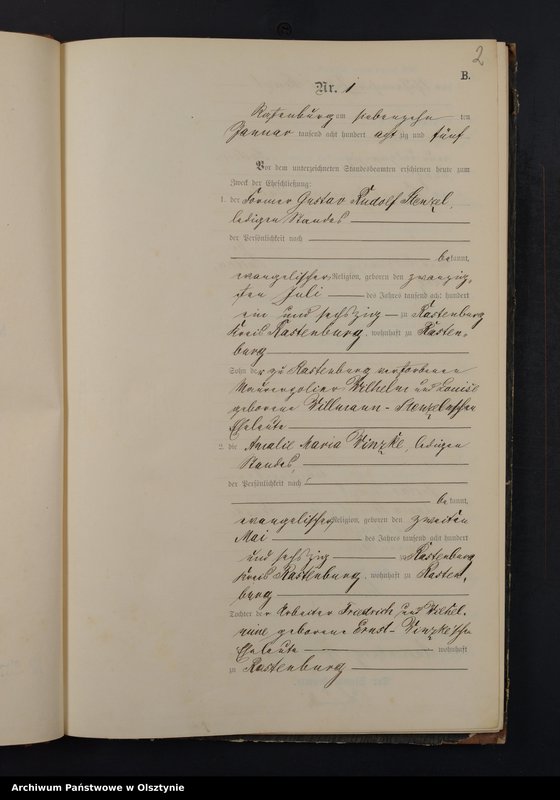 2
B.
Nr. 1
Rastenburg am siebenzehn ten
Januar tausend acht hundert acht zig und fünf
Vor dem unterzeichneten Standesbeamten erschienen heute zum
Zweck der Eheschließung:
1. der Former Gustav Rudolf Stenzel,
ledigen Standes
der Persönlichkeit nach
bekannt,
evangelischer Religion, geboren den zwanzig-
sten Juli des Jahres tausend acht hundert
ein und sechszig zu Rastenburg
Kreis Rastenburg, wohnhaft zu Rasten-
burg
Sohn der zu Rastenburg verstorbenen
Maurerpolier Wilhelm und Louise
geborene Willmann-Stenzelschen
Eheleute
2. die Amalie Maria Vinzke, ledigen
Standes,
der Persönlichkeit nach
bekannt,
evangelischer Religion, geboren den zweiten
Mai des Jahres tausend acht hundert
und sechszig zu Rastenburg
Kreis Rastenburg, wohnhaft zu Rasten-
burg
Tochter der Arbeiter Friedrich und Wilhel-
mine geborene Ernst-Vinzkeschen
Eheleute wohnhaft
zu Rastenburg
Archiwum Państwowe w Olsztynie